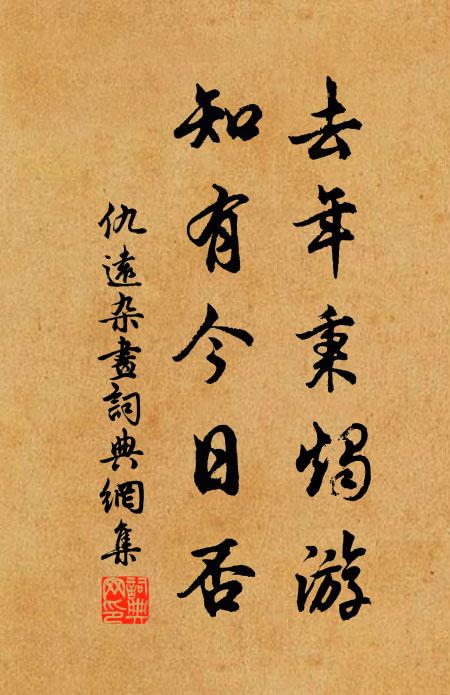 去年秉燭游
知有今日否
仇遠杂畫詞典網集
詞典网印